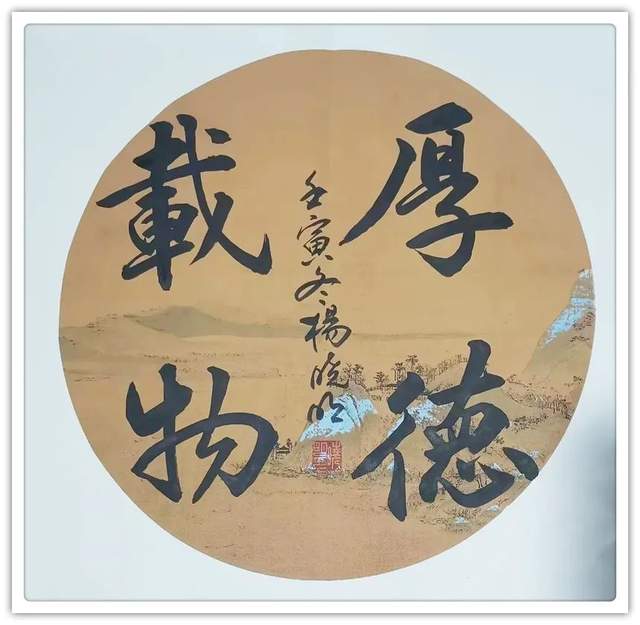 厚德
載物
壬寅冬楊曉明